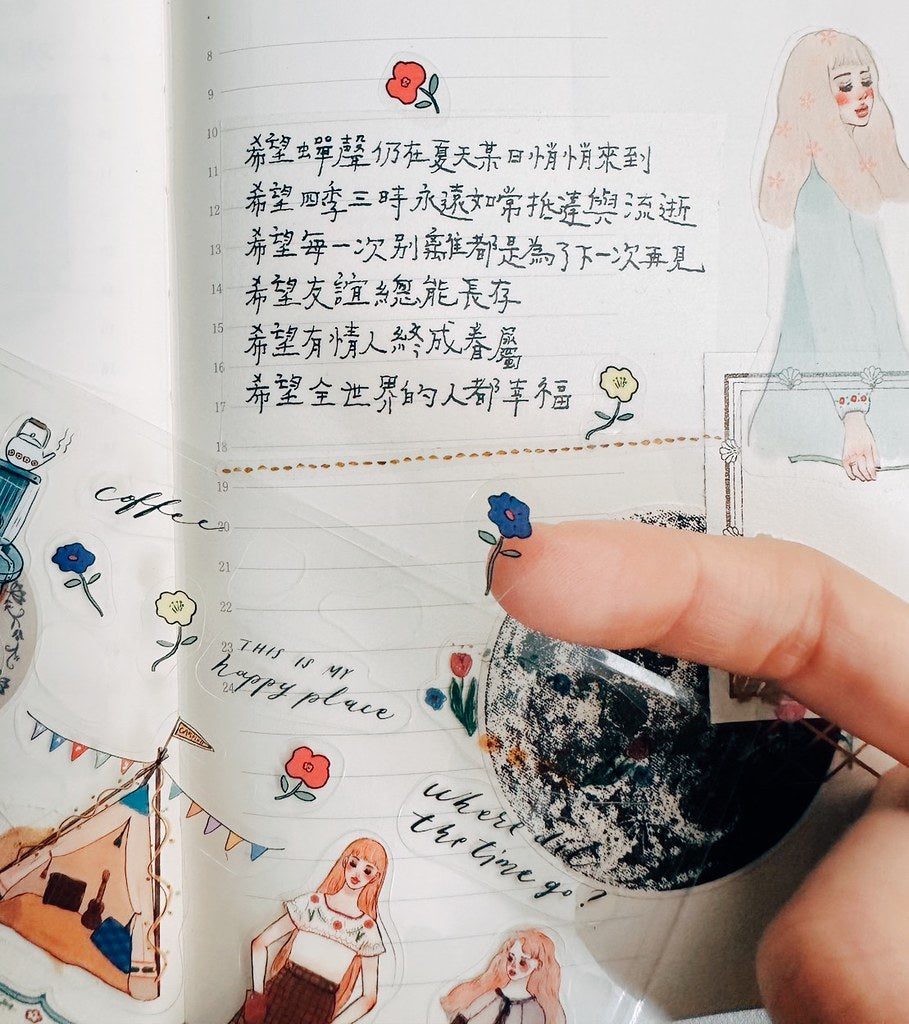 8
9
10
希望蟬聲仍在夏天某日悄悄來到
11
希望四季三時永遠如常抵達與流逝
12
希望每一次別離都是為了下一次再見
13
希望友誼總能長存
14
15
希望有情人終成眷屬
16
希望全世界的人都幸福
17
18
19
coffee
20
21
22
23
THIS IS MY
happy place
24
where did
the time go?